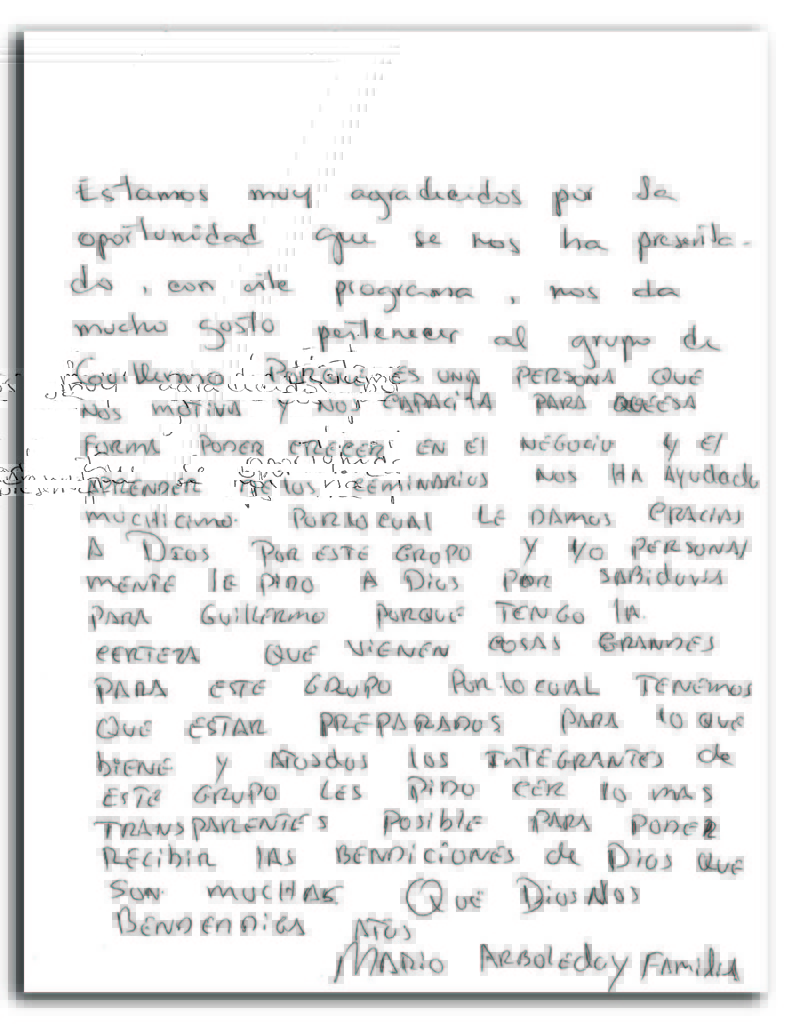 Estamos muy agradecidos por la
oportunidad que se nos ha presenta-
do, con este programa, nos da
mucho gusto pertenecer al grupo de
Guillermo ES UNA PERSONA QUE
NOS MOTIVA Y NOS CAPACITA PARA QUEESA
FORMA PODER CRECER EN El NEGOCIO Y El
APRENDER DE LOS SEMINARIOS NOS HA AYUdAdo
MUCHICIMO. PORLOCUAL LE DAMOS GRACIAS
A DIOS POR ESTE GRUPO Y YO PERSONAl
MENTE lE PIDO A DIOS POR SABIDURIA
PARA GUIllERMO PORQUE TENGO lA
CERTEZA QUE VIENEN COSAS GRANDES
PARA ESTE GRUPO PORLOCUAL TENEMOS
QUE ESTAR PREPARADOS PARA lO QUE
bIENE Y ATOSDOS lOS INTEGRANTES de
ESTE GRUPO LES PIDO CER lO MAS
TRANSPARENTES POSIblE PARA PODER
RECIbIR lAS BENDICIONES de DIOS QUE
SON MUCHAS QUE DIOS NOS
BENDENDIGA ATOS
MARIO ARBOLEDA Y FAMIlIA